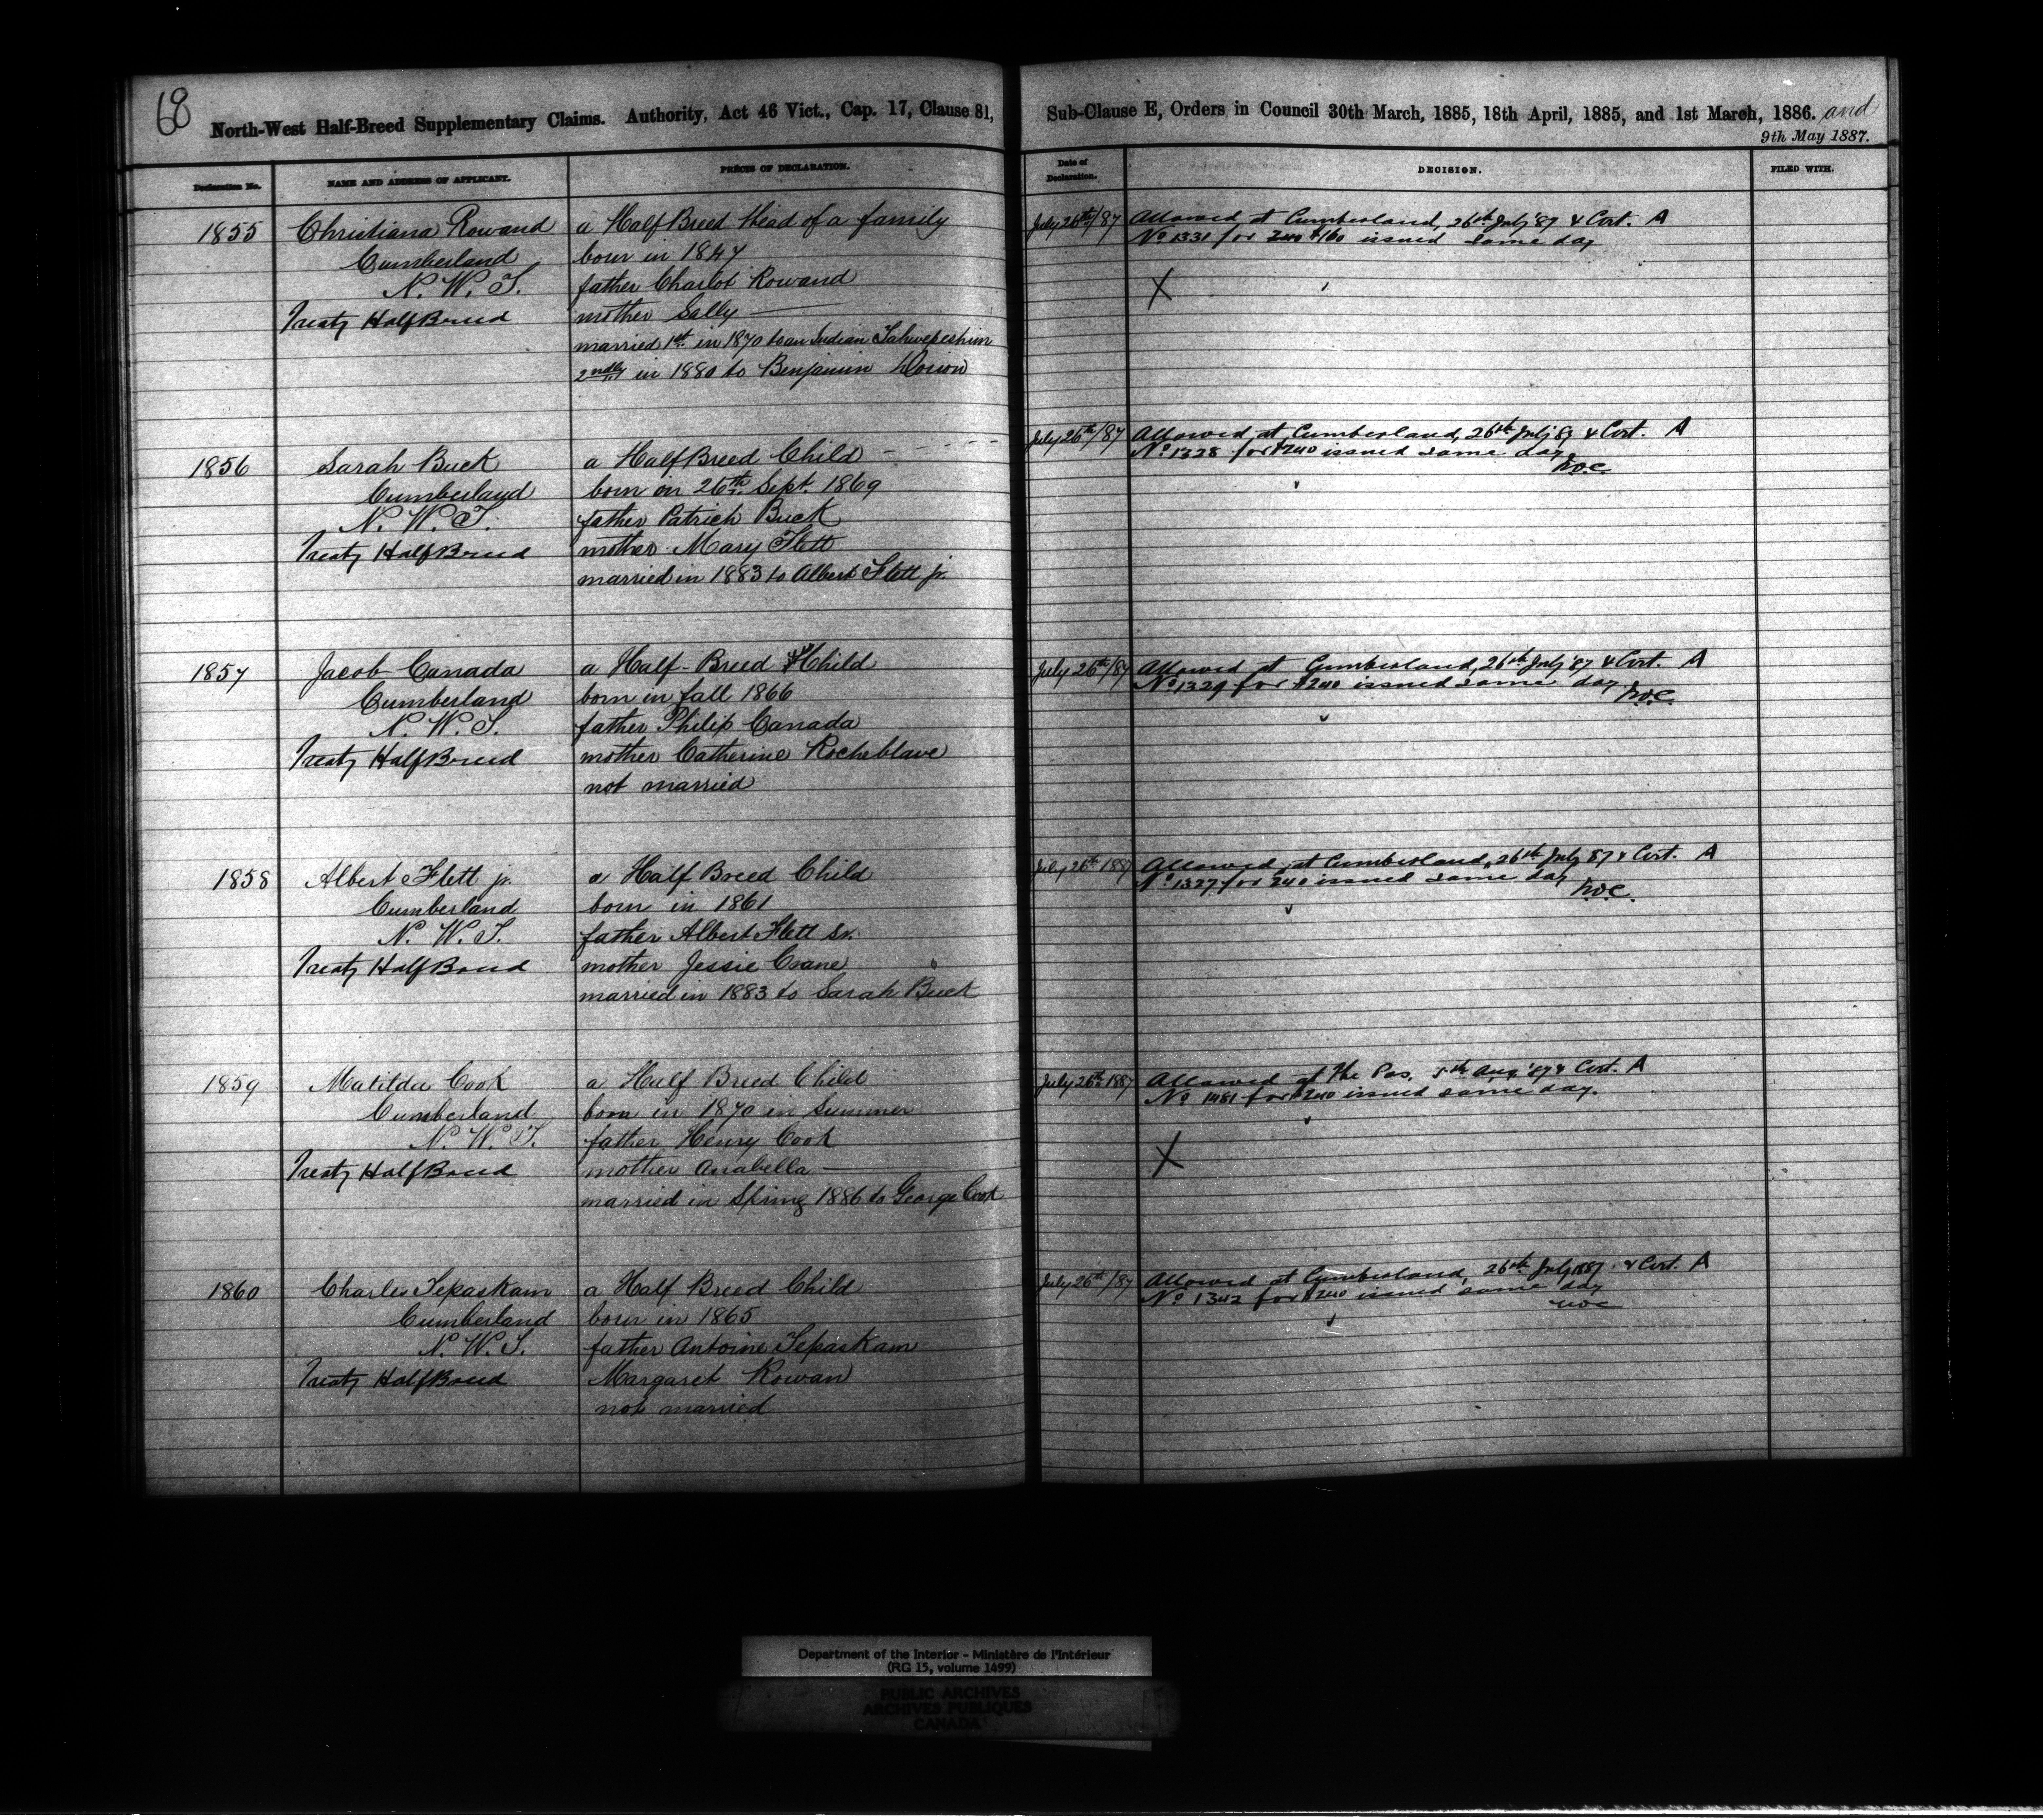 68
North-West Half-Breed Supplementary Claims. Authority, Act 46 Vict., Cap. 17, Clause 81,
Sub-Clause E, Orders in Council 30th March, 1885, 18th April, 1885, and 1st March, 1886. and
9th May 1887.
Declaration No.
NAME AND ADDRESS OF APPLICANT.
PRÉCIS OF DECLARATION.
Date of Declaration.
DECISION.
FILED WITH.
1855
Christiana Rowand
Cumberland
N. W. T.
Treaty HalfBreed
a HalfBreed Head of a family
born in 1847
father Charlot Rowand
mother Sally —
married 1st. in 1870 to an Indian
2ndly in 1880 to Benjamin Dorion
July 26th/87
Allowed at Cumberland, 26th July '87 & Cert. A
No 1331 for 240 $160 issued same day
X
1856
Sarah Buck
Cumberland
N. W. T.
Treaty HalfBreed
a HalfBreed Child
born on 26th. Sept. 1869
father Patrick Buck
mother Mary Flett
married in 1883 to Albert Flett jr.
July 26th/87
Allowed at Cumberland, 26th July '87 & Cert. A
No 1328 for $240 issued same day.
1857
Jacob Canada
Cumberland
N. W. T.
Treaty HalfBreed
a Half-Breed Child
born in fall 1866
father Philip Canada
mother Catherine Rocheblave
not married
July 26th/87
Allowed at Cumberland, 26th July '87 & Cert. A
No 1329 for $240 issued same day
1858
Albert Flett jr.
Cumberland
N. W. T.
Treaty HalfBreed
a Half Breed Child
born in 1861
father Albert Flett Sr.
mother Jessie Crane
married in 1883 to Sarah Buck
July 26th 1887
Allowed at Cumberland, 26th July 87 & Cert. A
No 1327 for 240 issued same day
1859
Matilda Cook
Cumberland
N. W. T.
Treaty HalfBreed
a Half Breed Child
born in 1870 in Summer
father Henry Cook
mother Anabella —
married in Spring 1886 to George Cook
July 26th 1887
Allowed at The Pas, 5th Aug '87 & Cert. A
No 1481 for $240 issued same day.
X
1860
Charles Tepaskam
Cumberland
N. W. T.
Treaty HalfBreed
a Half Breed Child
born in 1865
father Antoine Tepaskam
Margaret Rowan
not married
July 26th/87
Allowed at Cumberland, 26th July 1887 & Cert. A
No 1342 for $240 issued same day
Department of the Interior - Ministère de l'Intérieur
(RG 15, volume 1499)
PUBLIC ARCHIVES
ARCHIVES PUBLIQUES
CANADA